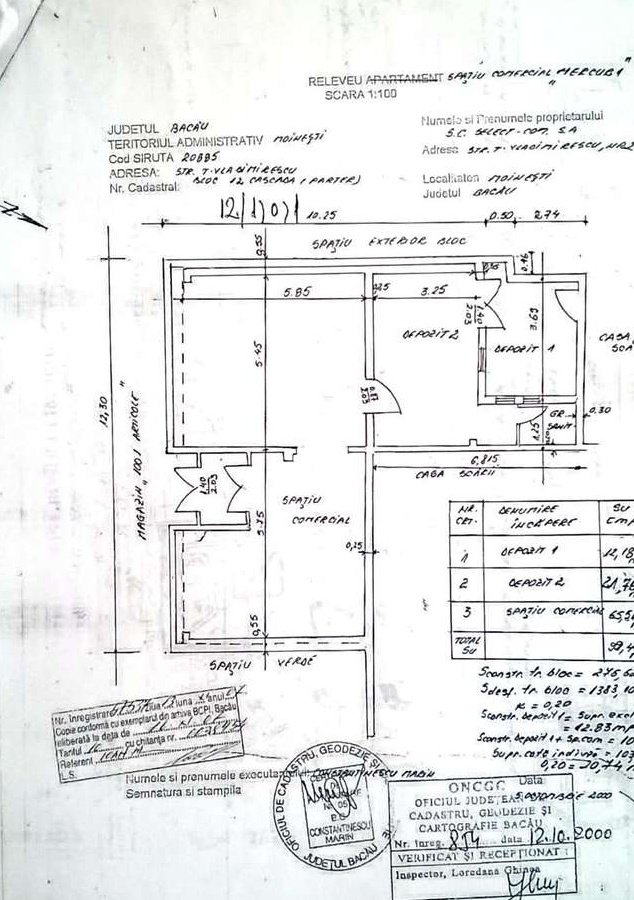 RELEVEU APARTAMENT SPAŢIU COMERCIAL „MERCUR 1"
SCARA 1:100
JUDETUL BACĂU
TERITORIUL ADMINISTRATIV MOINEŞTI
Cod SIRUTA 20885
ADRESA: STR. T. VLADIMIRESCU
BLOC 12 CASCADA (PARTER)
Nr. Cadastral:
Numele si Prenumele proprietarului
S.C. SELECT-COM. S.A
Adresa STR. T. VLADIMIRESCU, NR.2
Localitatea MOINEŞTI
Judetul BACĂU
10.25
0.50
2.74
SPAŢIU EXTERIOR BLOC
0.55
0.46
5.85
0.25
3.25
1.40
2.03
3.69
5.45
DEPOZIT 2
DEPOZIT 1
CASA
12,30
MAGAZIN „1001 ARTICOLE"
0.87
2.03
GR.
SANIT.
1.25
0,30
6,815
CASA SCĂRII
1.40
2.03
SPAŢIU
COMERCIAL
5.75
0,25
0,55
SPAŢIU VERDE
NR. CRT.
DENUMIRE ÎNCĂPERE
SU
1 DEPOZIT 1 12,18
2 DEPOZIT 2 21,76
3 SPAŢIU COMERCIAL 65,5
TOTAL SU 99,4
Sconstr. tr. bloc = 276,6
Sdesf. tr. bloc = 1383,1
K = 0,20
Sconstr. depozit 1 = Supr. exc
= 12.83 m
Sconstr. depozit 1 + Sp. com =
Supr. cote indiviză =
0,20 = 20,74
Nr. Inregistrare
Ziua
luna
anul
Copie conformă cu exemplarul din arhiva BCPI, Bacău
eliberată la data de
Tariful
cu chitanţa nr.
Referent
L.S.
Numele si prenumele executantului CONSTANTINESCU MARIN
Semnatura si stampila
Data
OFICIUL DE CADASTRU, GEODEZIE ŞI
JUDEŢUL BACĂU
CONSTANTINESCU
MARIN
ONCGC
OFICIUL JUDEŢEAN
CADASTRU, GEODEZIE ŞI
CARTOGRAFIE BACĂU
Nr. inreg. 854 data 12.10.2000
VERIFICAT ŞI RECEPŢIONAT:
Inspector, Loredana Ghinea